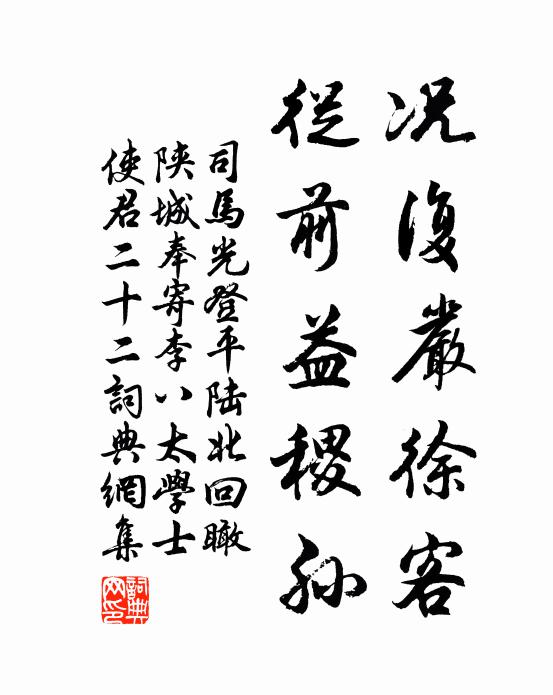 况復嚴徐客
從前益稷孫
司馬光登平陸北回瞰
陝城奉寄李八太學士
使君二十二詞典網集
詞典網印